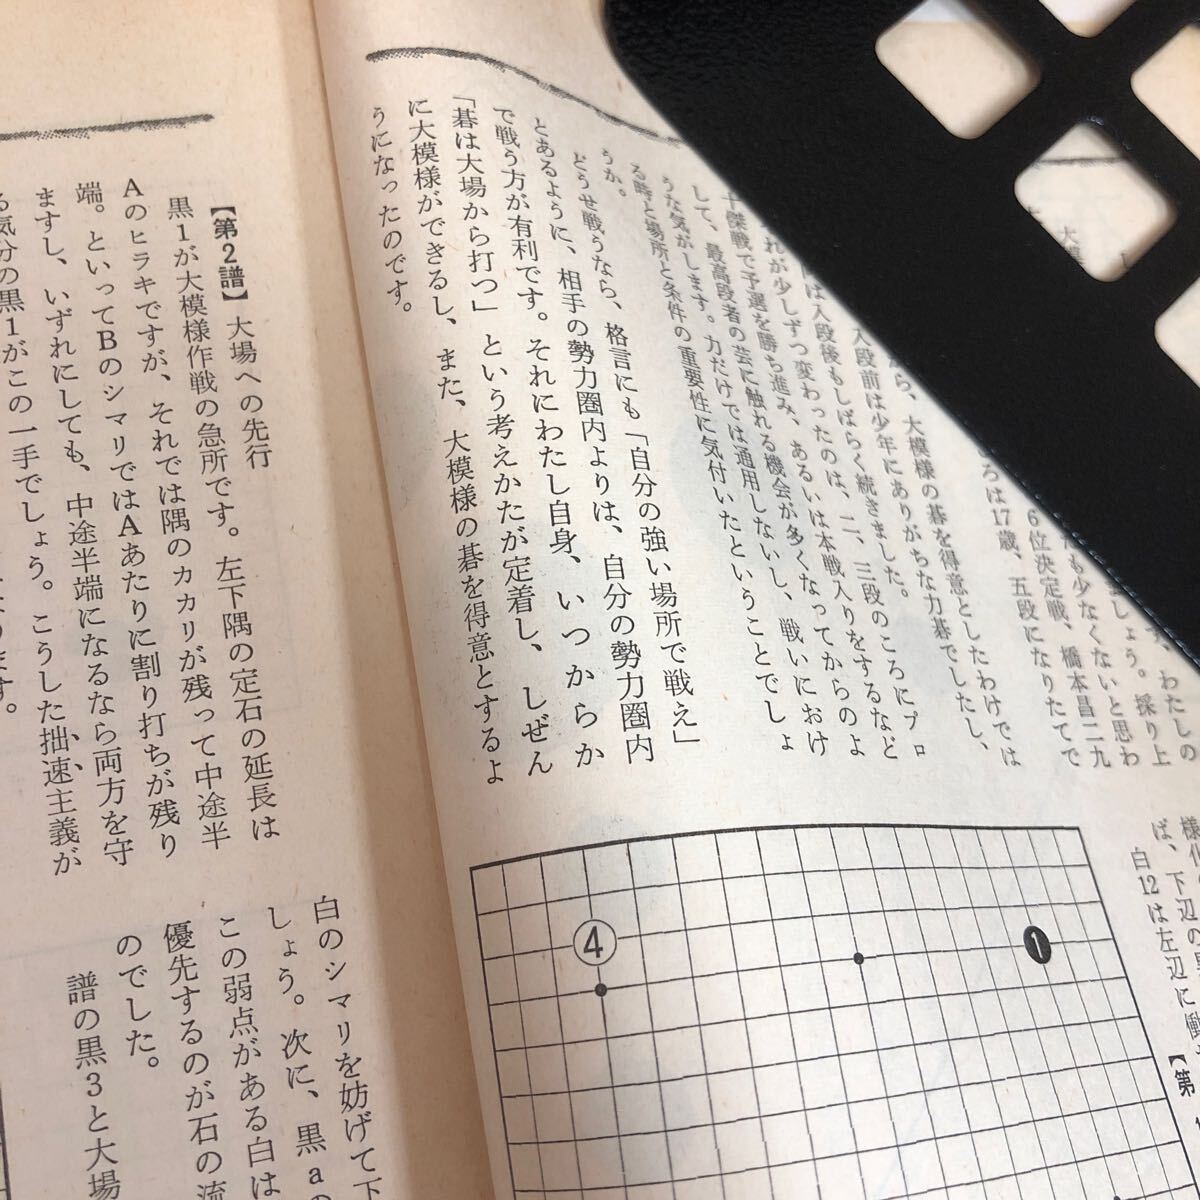 大模
す、わたしの
も少なくないと思わ
ましょう。採り上
6位決定戦、橋本昌二九
ろは17歳、五段になりたてで
ら、大模様の碁を得意としたわけでは
入段前は少年にありがちな力碁でしたし、
は入段後もしばらく続きました。
れが少しずつ変わったのは、二、三段のころにプロ
十傑戦で予選を勝ち進み、あるいは本戦入りをするなど
して、最高段者の芸に触れる機会が多くなってからのよ
うな気がします。力だけでは通用しないし、戦いにおけ
る時と場所と条件の重要性に気付いたということでしょ
うか。
どうせ戦うなら、格言にも「自分の強い場所で戦え」
とあるように、相手の勢力圏内よりは、自分の勢力圏内
で戦う方が有利です。それにわたし自身、いつからか
「碁は大場から打つ」という考えかたが定着し、しぜん
に大模様ができるし、また、大模様の碁を得意とするよ
うになったのです。
ば、下辺の
白12は左辺に働
【第
4
1
【第2譜】大場への先行
黒1が大模様作戦の急所です。左下隅の定石の延長は
Aのヒラキですが、それでは隅のカカリが残って中途半
端。といってBのシマリではAあたりに割り打ちが残り
ますし、いずれにしても、中途半端になるなら両方を守
る気分の黒1がこの一手でしょう。こうした拙速主義が
ます。
白のシマリを妨げて下
しょう。次に、黒aの
この弱点がある白は
優先するのが石の流
のでした。
譜の黒3と大場